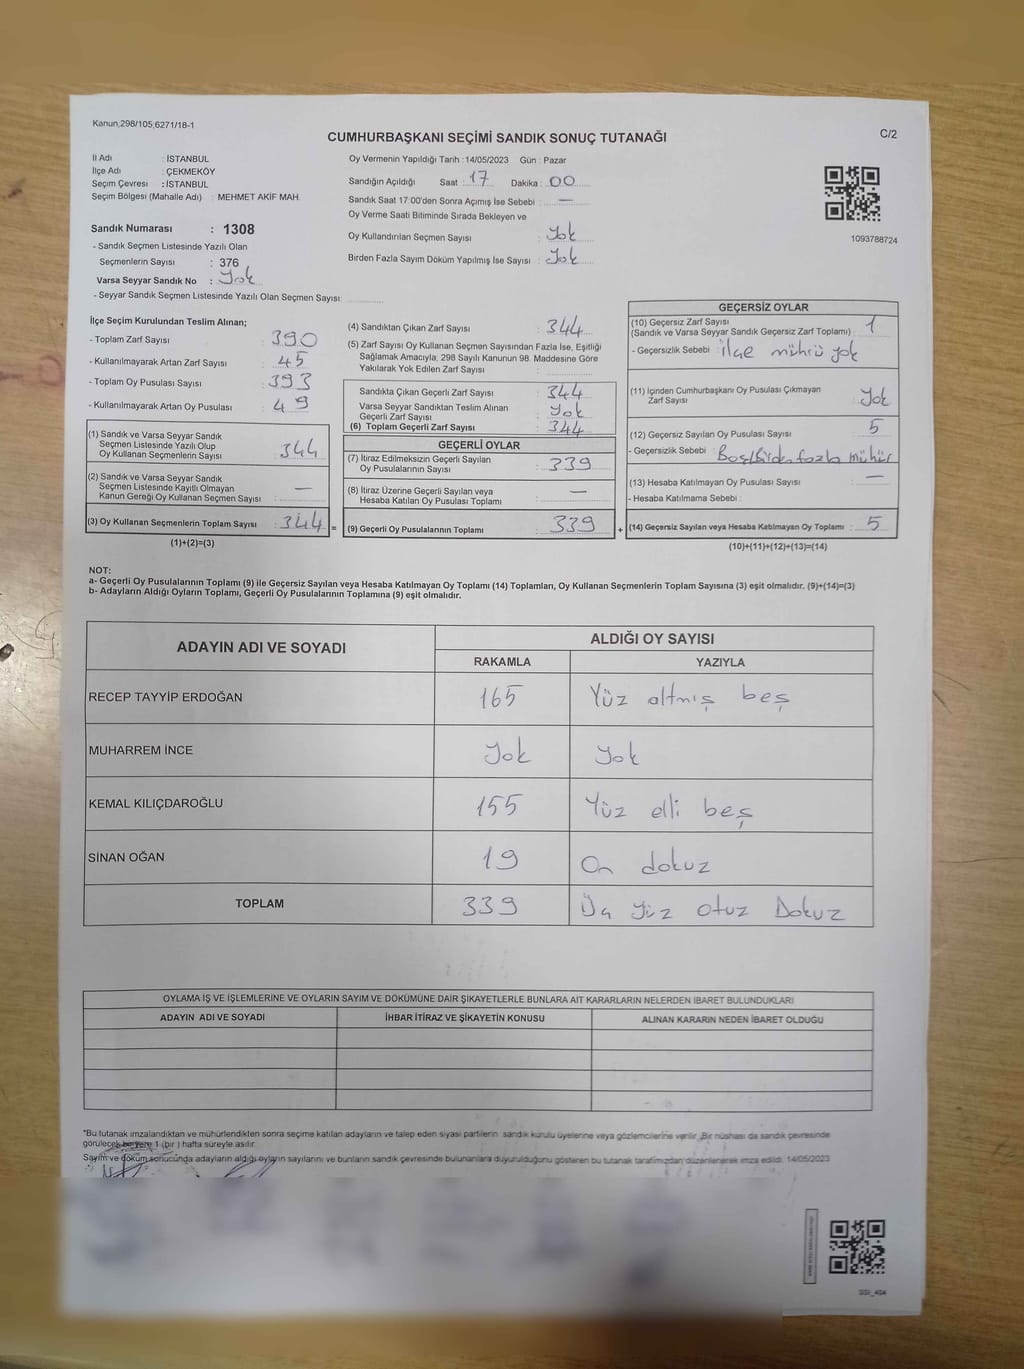 Kanun,298/105,6271/18-1
CUMHURBAŞKANI SEÇİMİ SANDIK SONUÇ TUTANAĞI
C/2
İl Adı : İSTANBUL
İlçe Adı : ÇEKMEKÖY
Seçim Çevresi : İSTANBUL
Seçim Bölgesi (Mahalle Adı) : MEHMET AKİF MAH.
Sandık Numarası : 1308
- Sandık Seçmen Listesinde Yazılı Olan
Seçmenlerin Sayısı : 376
Varsa Seyyar Sandık No : Yok
- Seyyar Sandık Seçmen Listesinde Yazılı Olan Seçmen Sayısı:
Oy Vermenin Yapıldığı Tarih : 14/05/2023 Gün : Pazar
Sandığın Açıldığı Saat : 17 Dakika : 00
Sandık Saat 17:00'den Sonra Açımış İse Sebebi : —
Oy Verme Saati Bitiminde Sırada Bekleyen ve
Oy Kullandırılan Seçmen Sayısı : Yok
Birden Fazla Sayım Döküm Yapılmış İse Sayısı : Yok
1093788724
İlçe Seçim Kurulundan Teslim Alınan;
- Toplam Zarf Sayısı : 390
- Kullanılmayarak Artan Zarf Sayısı : 45
- Toplam Oy Pusulası Sayısı : 393
- Kullanılmayarak Artan Oy Pusulası : 49
(1) Sandık ve Varsa Seyyar Sandık
Seçmen Listesinde Yazılı Olup
Oy Kullanan Seçmenlerin Sayısı : 344
(2) Sandık ve Varsa Seyyar Sandık
Seçmen Listesinde Kayıtlı Olmayan
Kanun Gereği Oy Kullanan Seçmen Sayısı : —
(3) Oy Kullanan Seçmenlerin Toplam Sayısı : 344 =
(1)+(2)=(3)
(4) Sandıktan Çıkan Zarf Sayısı : 344
(5) Zarf Sayısı Oy Kullanan Seçmen Sayısından Fazla İse, Eşitliği
Sağlamak Amacıyla, 298 Sayılı Kanunun 98. Maddesine Göre
Yakılarak Yok Edilen Zarf Sayısı :
Sandıkta Çıkan Geçerli Zarf Sayısı : 344
Varsa Seyyar Sandıktan Teslim Alınan
Geçerli Zarf Sayısı : Yok
(6) Toplam Geçerli Zarf Sayısı : 344
GEÇERLİ OYLAR
(7) İtiraz Edilmeksizin Geçerli Sayılan
Oy Pusulalarının Sayısı : 339
(8) İtiraz Üzerine Geçerli Sayılan veya
Hesaba Katılan Oy Pusulası Toplamı : —
(9) Geçerli Oy Pusulalarının Toplamı : 339 +
GEÇERSİZ OYLAR
(10) Geçersiz Zarf Sayısı
(Sandık ve Varsa Seyyar Sandık Geçersiz Zarf Toplamı) : 1
- Geçersizlik Sebebi : İlçe mührü yok
(11) İçinden Cumhurbaşkanı Oy Pusulası Çıkmayan
Zarf Sayısı : Yok
(12) Geçersiz Sayılan Oy Pusulası Sayısı : 5
- Geçersizlik Sebebi : Boş/Birden fazla mühür
(13) Hesaba Katılmayan Oy Pusulası Sayısı : —
- Hesaba Katılmama Sebebi :
(14) Geçersiz Sayılan veya Hesaba Katılmayan Oy Toplamı : 5
(10)+(11)+(12)+(13)=(14)
NOT:
a- Geçerli Oy Pusulalarının Toplamı (9) ile Geçersiz Sayılan veya Hesaba Katılmayan Oy Toplamı (14) Toplamları, Oy Kullanan Seçmenlerin Toplam Sayısına (3) eşit olmalıdır. (9)+(14)=(3)
b- Adayların Aldığı Oyların Toplamı, Geçerli Oy Pusulalarının Toplamına (9) eşit olmalıdır.
ADAYIN ADI VE SOYADI
ALDIĞI OY SAYISI
RAKAMLA YAZIYLA
RECEP TAYYİP ERDOĞAN 165 Yüz altmış beş
MUHARREM İNCE Yok Yok
KEMAL KILIÇDAROĞLU 155 Yüz elli beş
SİNAN OĞAN 19 On dokuz
TOPLAM 339 Üç Yüz Otuz Dokuz
OYLAMA İŞ VE İŞLEMLERİNE VE OYLARIN SAYIM VE DÖKÜMÜNE DAİR ŞİKAYETLERLE BUNLARA AİT KARARLARIN NELERDEN İBARET BULUNDUKLARI
ADAYIN ADI VE SOYADI İHBAR İTİRAZ VE ŞİKAYETİN KONUSU ALINAN KARARIN NEDEN İBARET OLDUĞU
*Bu tutanak imzalandıktan ve mühürlendikten sonra seçime katılan adayların ve talep eden siyasi partilerin sandık kurulu üyelerine veya gözlemcilerine verilir. Bir nüshası da sandık çevresinde
görülecek bir yere 1 (bir ) hafta süreyle asılır.
Sayım ve döküm sonucunda adayların aldığı oyların sayılarını ve bunların sandık çevresinde bulunanlara duyurulduğunu gösteren bu tutanak tarafımızdan düzenlenerek imza edildi. 14/05/2023